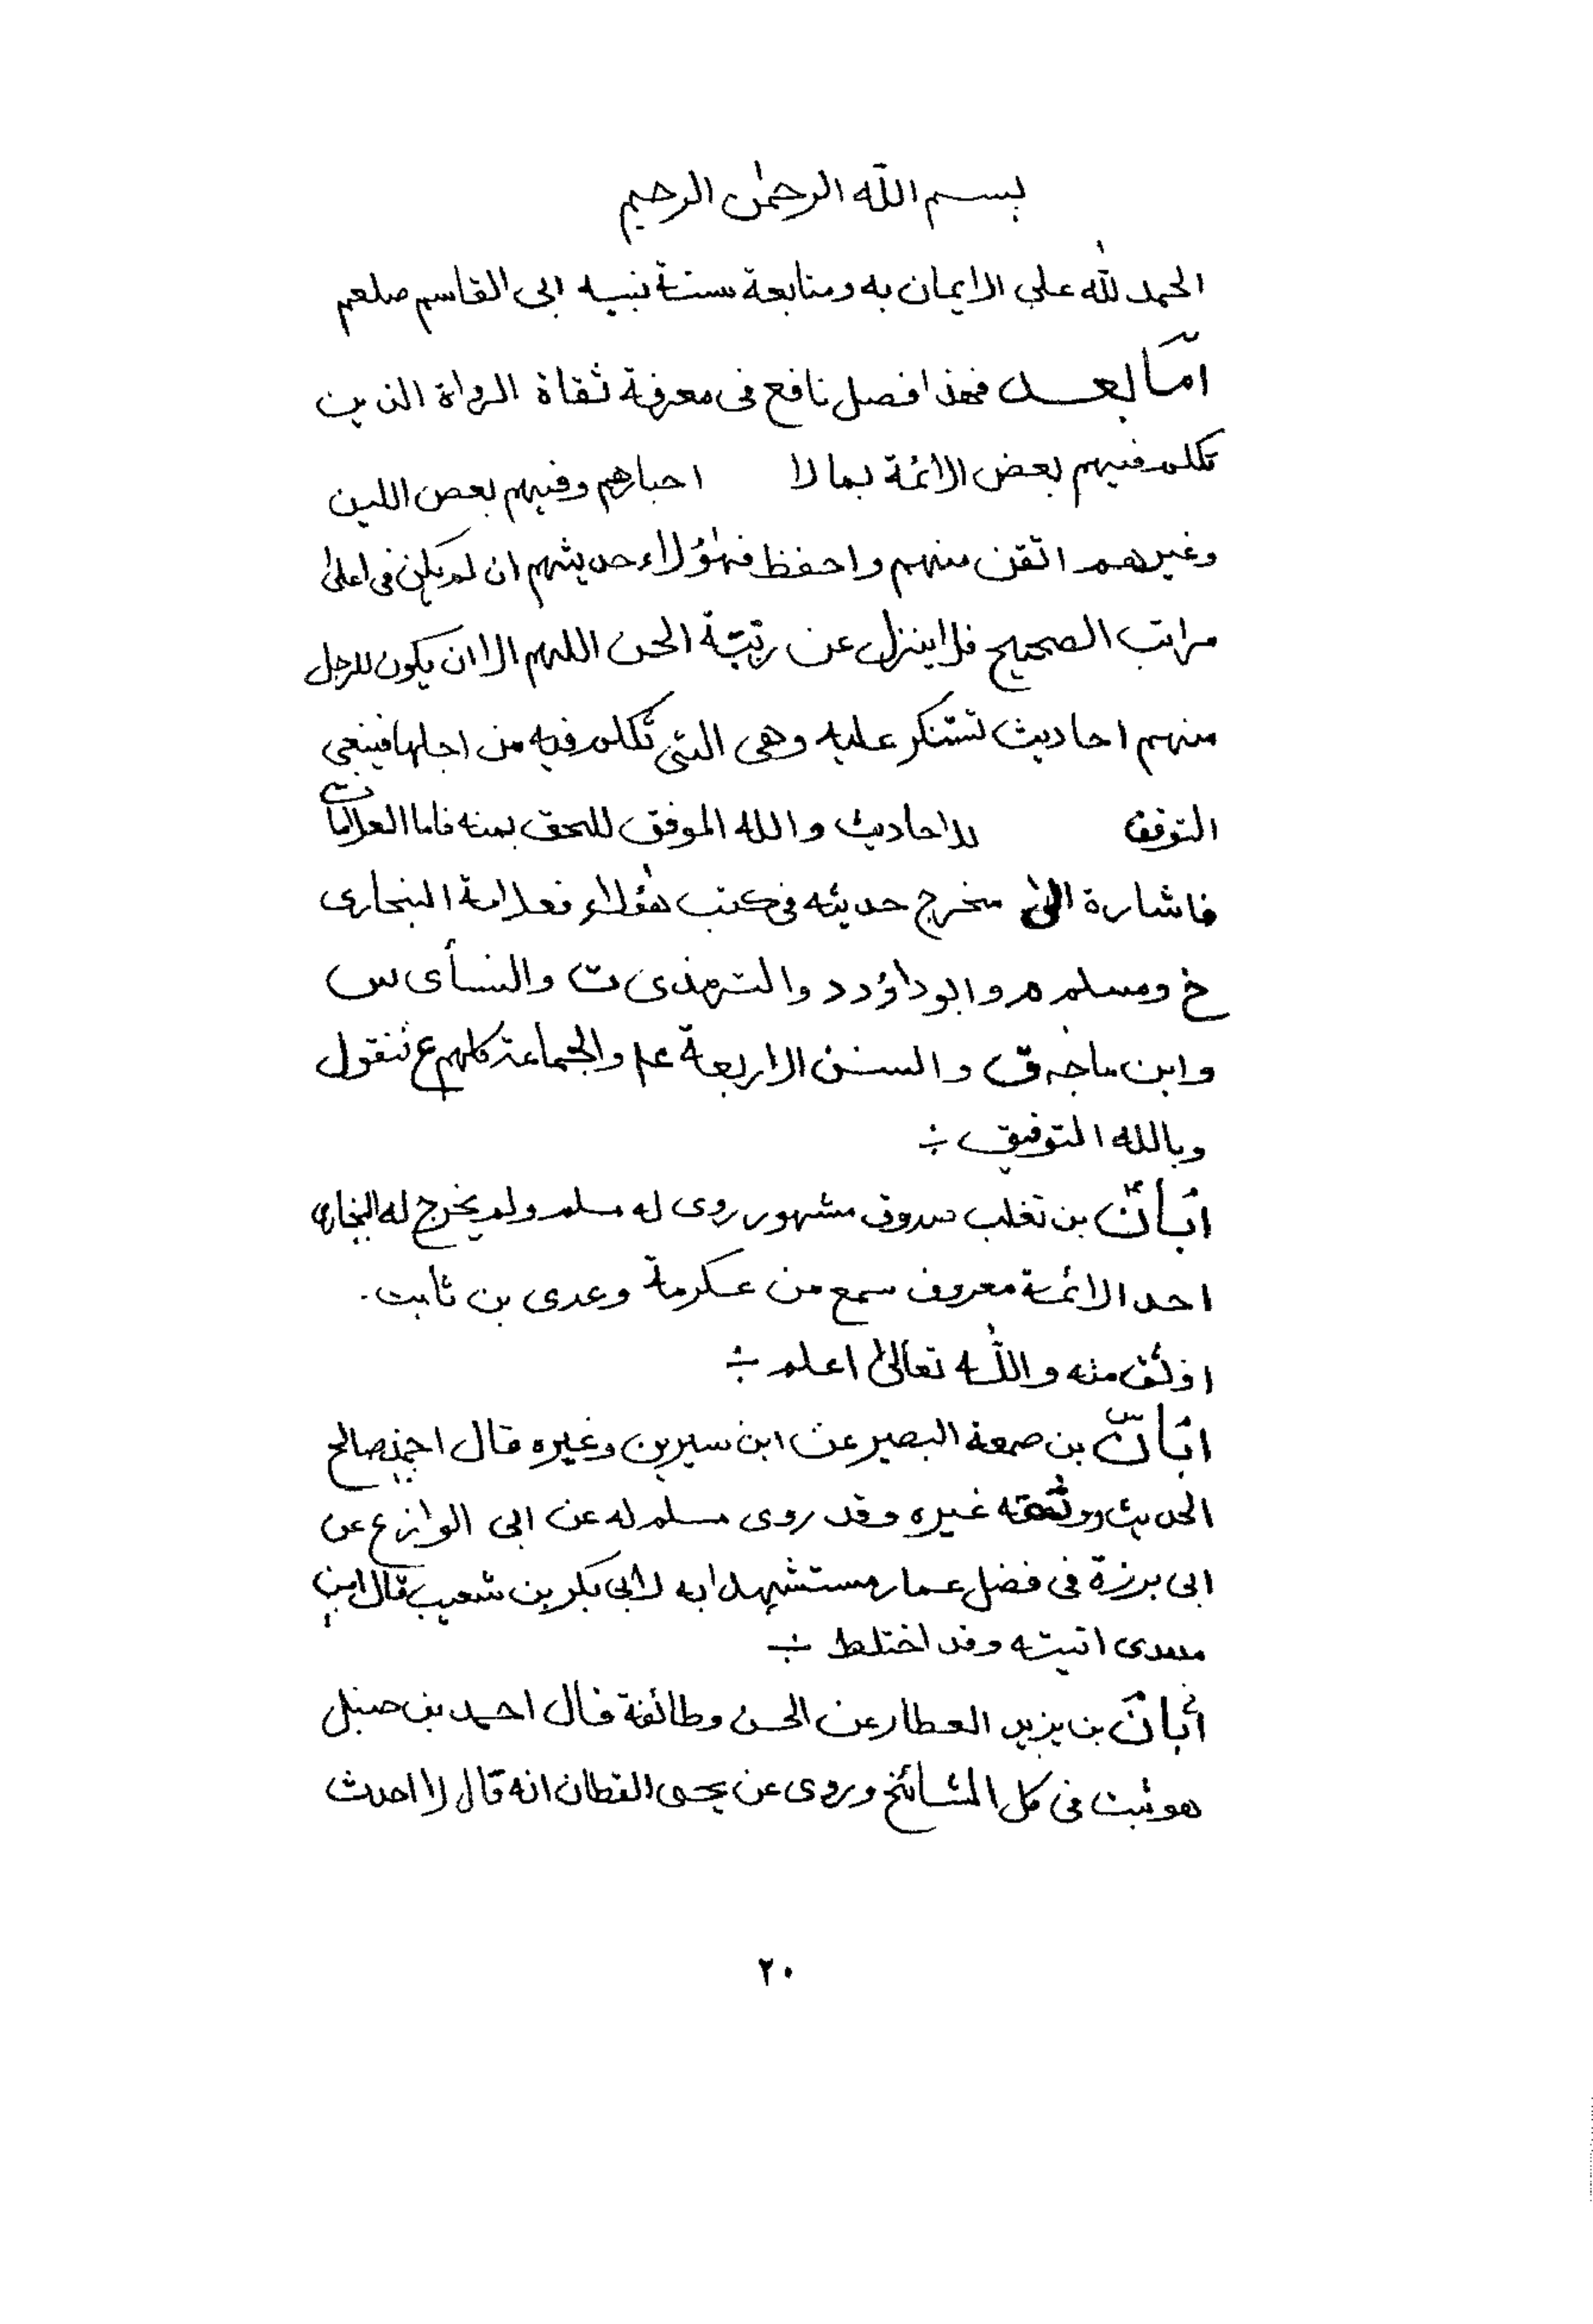 بسم الله الرحمٰن الرحيم
الحمد لله على الايمان به ومتابعة سنة نبيه ابى القاسم صلعم
امّا بعد فهذا فصل نافع فى معرفة ثقاة الرواة الذين
تكلم فيهم بعض الائمة بما لا احبارهم وفيهم بعض اللين
وغيرهم اتقن منهم واحفظ فهٰؤلاء حديثهم ان لم يكن فى اعلىٰ
مراتب الصحيح فلا ينزل عن رتبة الحسن اللهم الا ان يكون للرجل
منهم احاديث تستنكر عليه وهى التى تكلم فيه من اجلها فينبغى
التوقف للاحاديث والله الموفق للحق بمنه فاما العلامات
فاشارة الىٰ مخرج حديثه فى كتب هٰؤلاء فعلامة البخارى
خ ومسلم م وابو داؤد د والترمذى ت والنسأى س
وابن ماجه ق والسنن الاربعة عم والجماعة كلهم ع فنقول
وبالله التوفيق ÷
أبان بن تغلب صدوق مشهور روى له مسلم ولم يخرج له البخارى
احد الائمة معروف سمع من عكرمة وعدى بن ثابت.
اوثق منه والله تعالىٰ اعلم ÷
ابان بن صمعة البصير عن ابن سيرين وغيره قال احمد صالح
الحديث ووثقه غيره وقد روى مسلم له عن ابى الوازع عن
ابى برزة فى فضل عمار مستشهدا به لابى بكر بن شعيب قال ابن
مهدى اتيته وقد اختلط ÷
أبان بن يزيد العطار عن الحسن وطائفة قال احمد بن حنبل
هو ثبت فى كل المشائخ وروى عن يحيى القطان انه قال لا احدث
٢٠